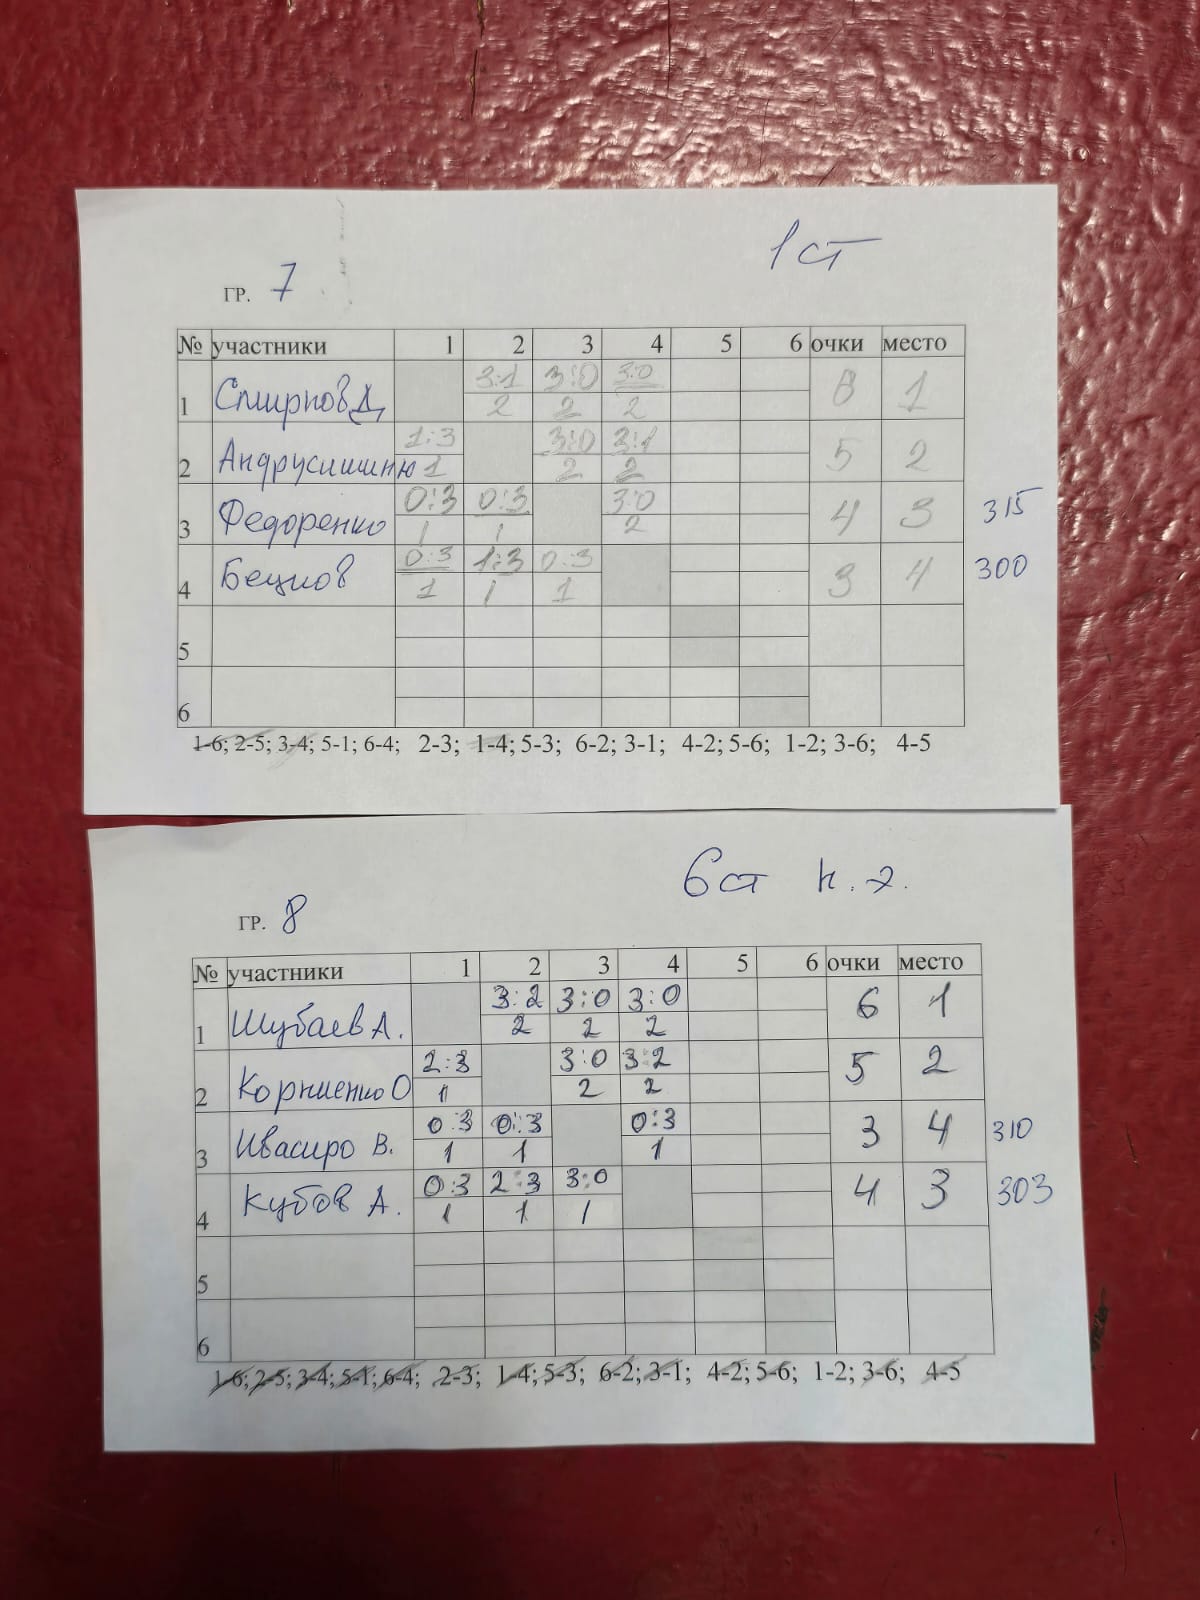 1 ст
ГР. 7
№ участники 1 2 3 4 5 6 очки место
3:1 3:0 3:0
1 Смирнов Д, 2 2 2 6 1
1:3 3:0 3:1
2 1 2 2 5 2
0:3 0:3 3:0
3 Федоренко 1 1 2 4 3 315
0:3 1:3 0:3
4 1 1 1 3 4 300
5
6
1-6; 2-5; 3-4; 5-1; 6-4; 2-3; 1-4; 5-3; 6-2; 3-1; 4-2; 5-6; 1-2; 3-6; 4-5
6 ст
ГР. 8
№ участники 1 2 3 4 5 6 очки место
3:2 3:0 3:0
1 Шубаев А. 2 2 2 6 1
2:3 3:0 3:2
2 Корниенко О 1 2 2 5 2
0:3 0:3 0:3
3 В. 1 1 1 3 4 310
0:3 2:3 3:0
4 Кубов А. 1 1 1 4 3 303
5
6
1-6; 2-5; 3-4; 5-1; 6-4; 2-3; 1-4; 5-3; 6-2; 3-1; 4-2; 5-6; 1-2; 3-6; 4-5